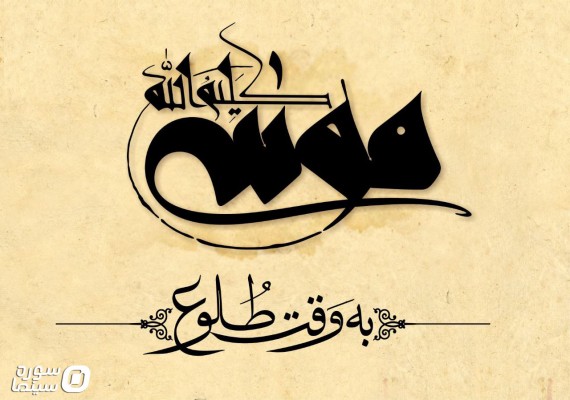 موسی
کلیم‌الله
به وقت طلوع
سوره
سینما